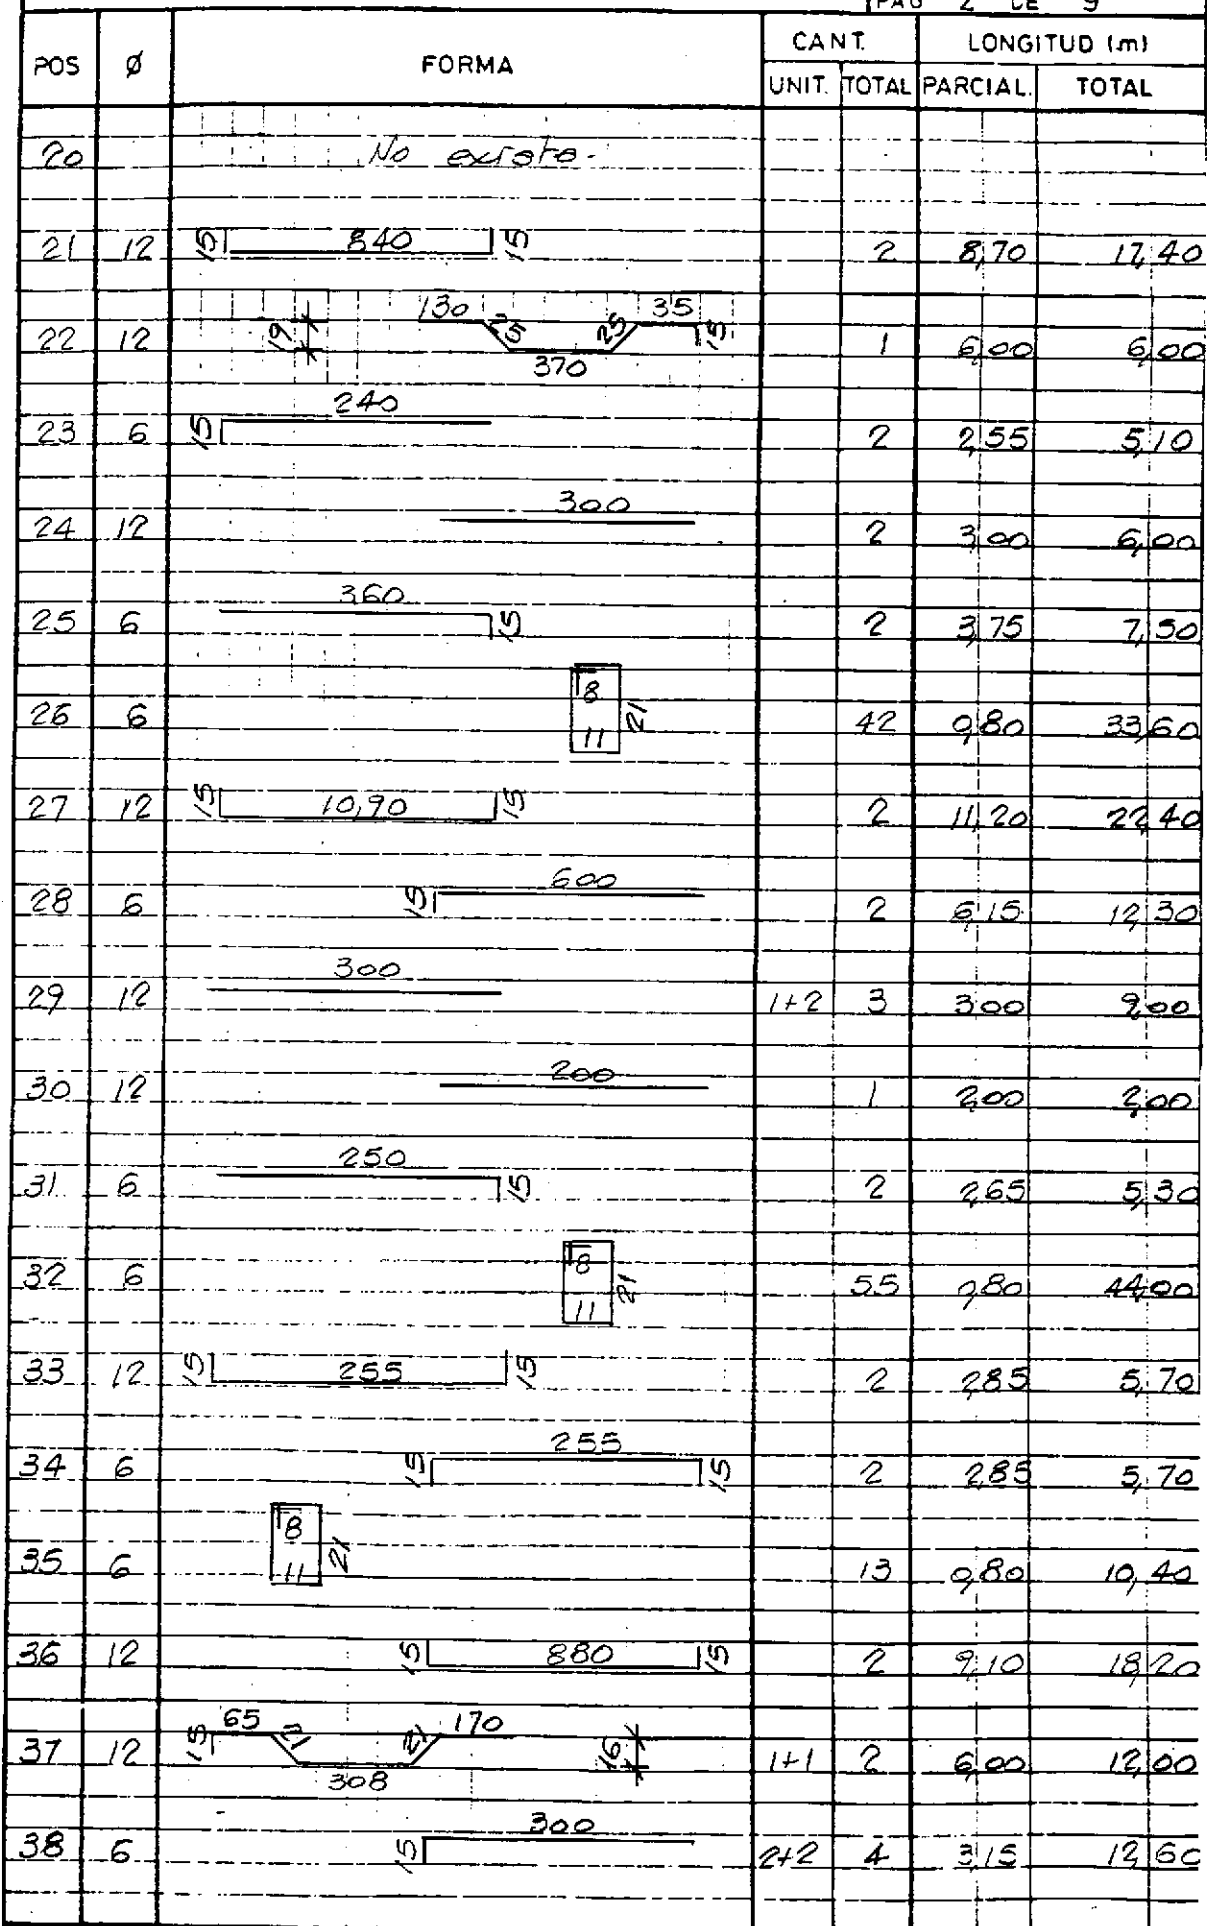 PAG 2 DE 9
POS Ø FORMA CANT. LONGITUD (m)
UNIT. TOTAL PARCIAL. TOTAL
20 No existe.
21 12 15 840 15 2 8,70 17,40
22 12 19 130 25 370 25 35 15 1 6,00 6,00
23 6 15 240 2 2,55 5,10
24 12 300 2 3,00 6,00
25 6 360 15 2 3,75 7,50
26 6 8 11 21 42 0,80 33,60
27 12 15 10,90 15 2 11,20 22,40
28 6 15 600 2 6,15 12,30
29 12 300 1+2 3 3,00 9,00
30 12 200 1 2,00 2,00
31 6 250 15 2 2,65 5,30
32 6 8 11 21 55 0,80 44,00
33 12 15 255 15 2 2,85 5,70
34 6 15 255 15 2 2,85 5,70
35 6 8 11 21 13 0,80 10,40
36 12 15 880 15 2 9,10 18,20
37 12 15 65 21 308 21 170 16 1+1 2 6,00 12,00
38 6 15 300 2+2 4 3,15 12,60